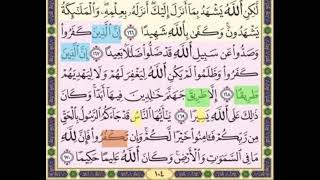 لَّٰكِنِ ٱللَّهُ يَشْهَدُ بِمَآ أَنزَلَ إِلَيْكَ أَنزَلَهُۥ بِعِلْمِهِۦ وَٱلْمَلَٰٓئِكَةُ
يَشْهَدُونَ وَكَفَىٰ بِٱللَّهِ شَهِيدًا ١٦٦ إِنَّ ٱلَّذِينَ كَفَرُوا۟
وَصَدُّوا۟ عَن سَبِيلِ ٱللَّهِ قَدْ ضَلُّوا۟ ضَلَٰلًۢا بَعِيدًا ١٦٧ إِنَّ ٱلَّذِينَ
كَفَرُوا۟ وَظَلَمُوا۟ لَمْ يَكُنِ ٱللَّهُ لِيَغْفِرَ لَهُمْ وَلَا لِيَهْدِيَهُمْ
طَرِيقًا ١٦٨ إِلَّا طَرِيقَ جَهَنَّمَ خَٰلِدِينَ فِيهَآ أَبَدًا وَكَانَ
ذَٰلِكَ عَلَى ٱللَّهِ يَسِيرًا ١٦٩ يَٰٓأَيُّهَا ٱلنَّاسُ قَدْ جَآءَكُمُ ٱلرَّسُولُ بِٱلْحَقِّ
مِن رَّبِّكُمْ فَـَٔامِنُوا۟ خَيْرًا لَّكُمْ وَإِن تَكْفُرُوا۟ فَإِنَّ لِلَّهِ
مَا فِى ٱلسَّمَٰوَٰتِ وَٱلْأَرْضِ وَكَانَ ٱللَّهُ عَلِيمًا حَكِيمًا ١٧٠
١٠٤